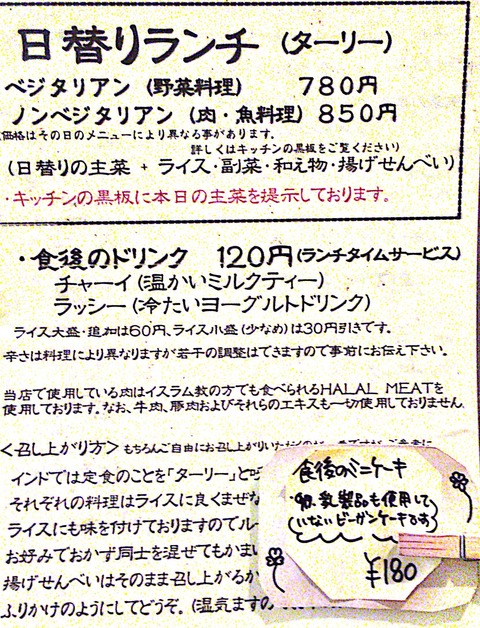 日替りランチ (ターリー)
ベジタリアン (野菜料理) 780円
ノンベジタリアン (肉・魚料理) 850円
(価格はその日のメニューにより異なる事があります。
詳しくはキッチンの黒板をご覧ください)
(日替りの主菜 + ライス・副菜・和え物・揚げせんべい)
・キッチンの黒板に本日の主菜を提示しております。
・食後のドリンク 120円(ランチタイムサービス)
チャーイ (温かいミルクティー)
ラッシー (冷たいヨーグルトドリンク)
ライス大盛・追加は60円、ライス小盛(少なめ)は30円引きです。
辛さは料理により異なりますが若干の調整はできますので事前にお伝え下さい。
当店で使用している肉はイスラム教の方でも食べられるHALAL MEATを
使用しております。なお、牛肉、豚肉およびそれらのエキスも一切使用しておりません
<召し上がり方> もちろんご自由にお召し上がりいただくのが
インドでは定食のことを「ターリー」と呼
それぞれの料理はライスに良くまぜな
ライスにも味を付けておりますのでルー
お好みでおかず同士を混ぜてもかまい
揚げせんべいはそのまま召し上がるか
ふりかけのようにしてどうぞ。(湿気ますの
食後のミニケーキ
卵、乳製品も使用して
いないビーガンケーキです
¥180